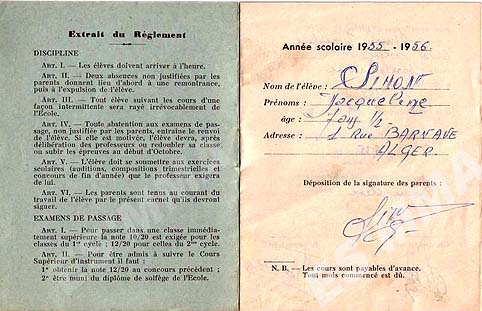 Extrait du Règlement
DISCIPLINE
ART. I. — Les élèves doivent arriver à l'heure.
ART. II. — Deux absences non justifiées par les
parents donnent lieu d'abord à une remontrance,
puis à l'expulsion de l'élève.
ART. III. — Tout élève suivant les cours d'une
façon intermittente sera rayé irrévocablement de
l'Ecole.
ART. IV. — Toute absentation aux examens de pas-
sage, non justifiée par les parents, entraîne le renvoi
de l'élève. Si elle est motivée, l'élève devra, après
délibération des professeurs ou redoubler sa classe
ou subir les épreuves au début d'Octobre.
ART. V. — L'élève doit se soumettre aux exercices
scolaires (auditions, compositions trimestrielles et
concours de fin d'année) que le professeur exigera
de lui.
ART. VI. — Les parents sont tenus au courant du
travail de l'élève par le présent carnet qu'ils devront
signer.
EXAMENS DE PASSAGE
ART. I. — Pour passer dans une classe immédia-
tement supérieure la note 10/20 est exigée pour les
classes du 1er cycle ; 12/20 pour celles du 2me cycle.
ART. II. — Pour être admis à suivre le Cours
Supérieur d'instrument il faut :
1° obtenir la note 12/20 au concours précédent ;
2° être muni du diplôme de solfège de l'Ecole.
Année scolaire 1955 - 1956.
Nom de l'élève : SIMON
Prénoms : Jacqueline
âge : 7 ans 1/2
Adresse : 1 Rue BARNAVE
ALGER.
Déposition de la signature des parents :
N. B. — Les cours sont payables d'avance.
Tout mois commencé est dû.